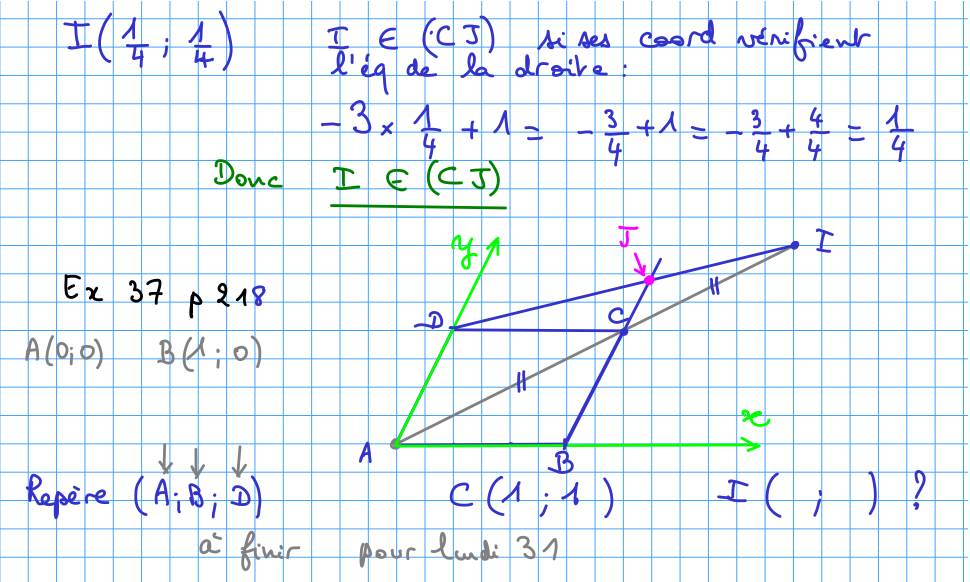 I(1/4 ; 1/4) I ∈ (CJ) si ses coord vérifient
l'éq de la droite :
-3 × 1/4 + 1 = -3/4 + 1 = -3/4 + 4/4 = 1/4
Donc I ∈ (CJ)
y J I
Ex 37 p 218
D C
A(0;0) B(1;0)
x
A B
Repère (A; B; D) C(1 ; 1) I( ; ) ?
à finir pour lundi 31